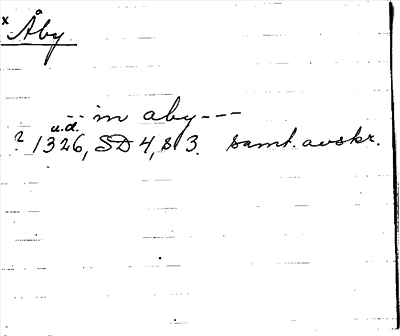 x Åby
-- in aby ---
u.d.
? 1326, SD 4, s 3. samt. avskr.